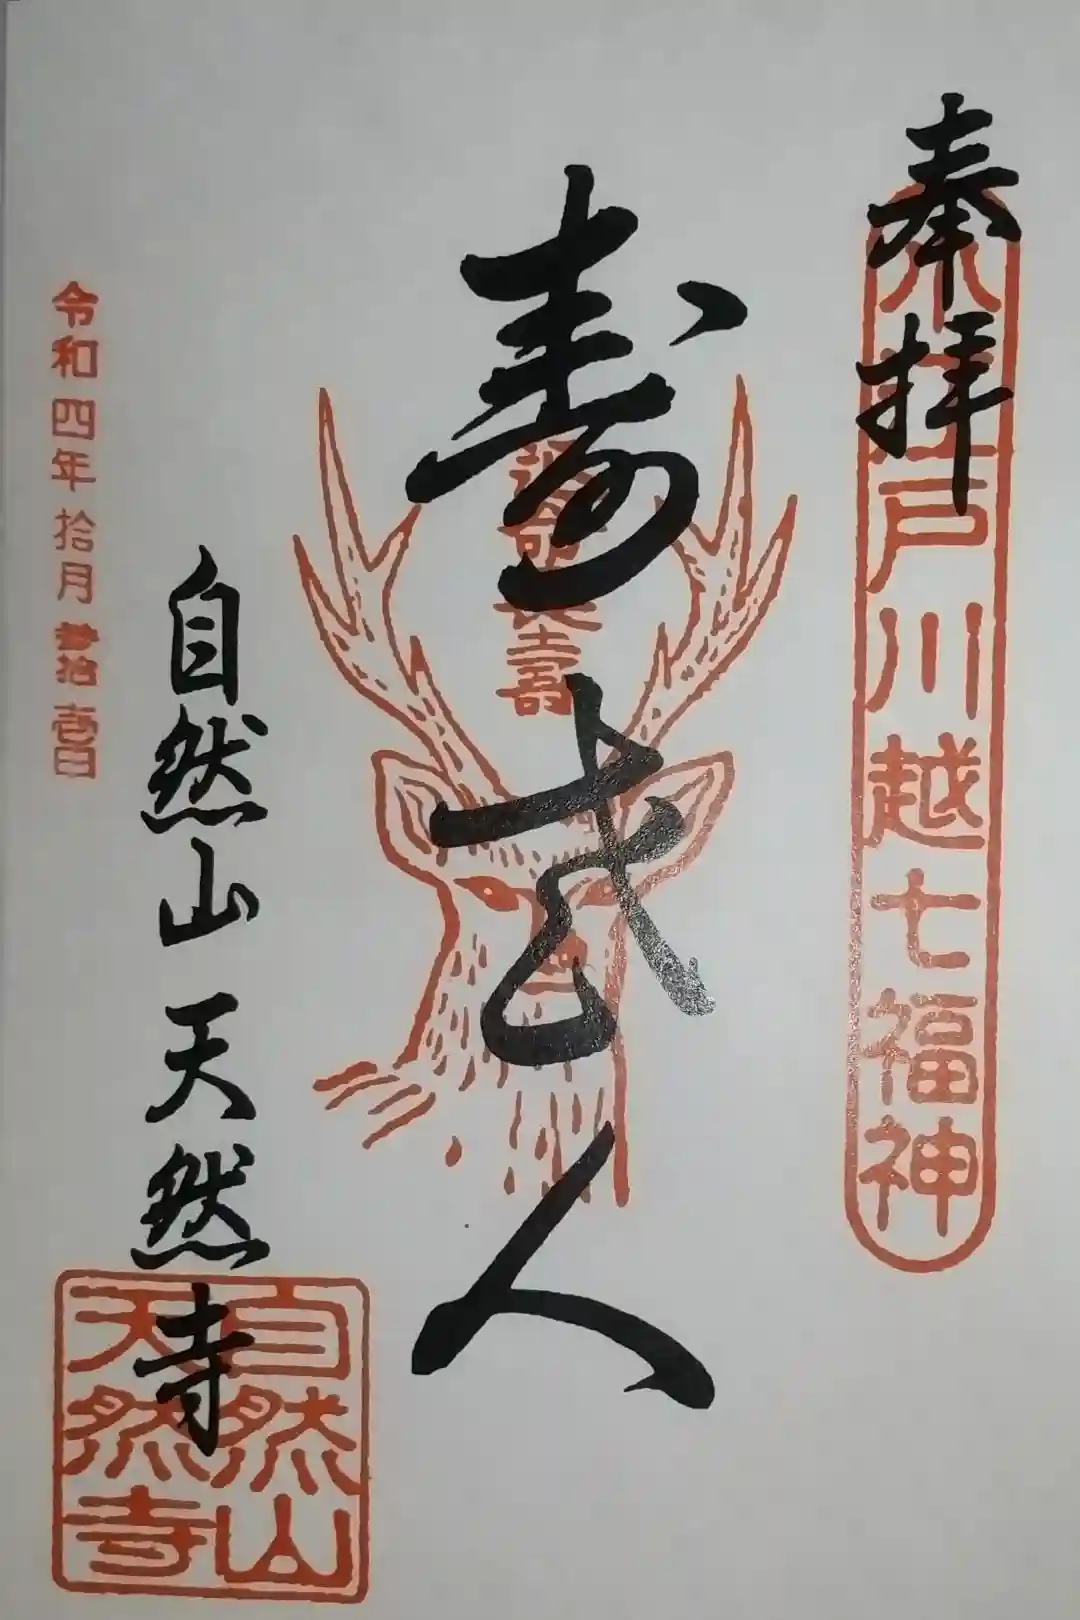 奉拝
小江戸川越七福神
寿老人
自然山 天然寺
自然山
天然寺
令和四年拾月参拾壱日